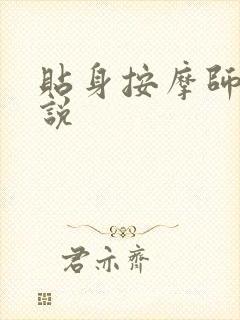 貼身按摩師
説
君亦齊